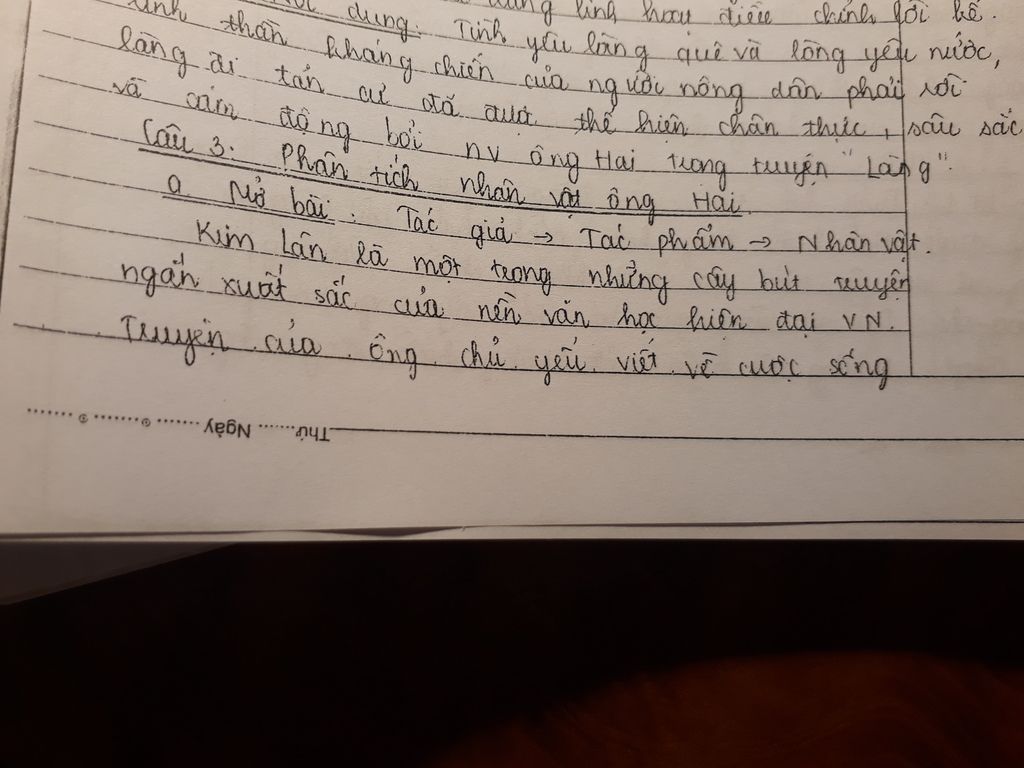 dung. Tình yêu làng quê và lòng yêu nước,
tinh thần kháng chiến của người nông dân phải rời
làng đi tản cư đã được thể hiện chân thực, sâu sắc
và cảm động bởi NV ông Hai trong truyện "Làng".
Câu 3. Phân tích nhân vật ông Hai.
a Mở bài: Tác giả → Tác phẩm → Nhân vật.
Kim Lân là một trong những cây bút truyện
ngắn xuất sắc của nền văn học hiện đại VN.
Truyện của ông chủ yếu viết về cuộc sống
Thứ....... Ngày